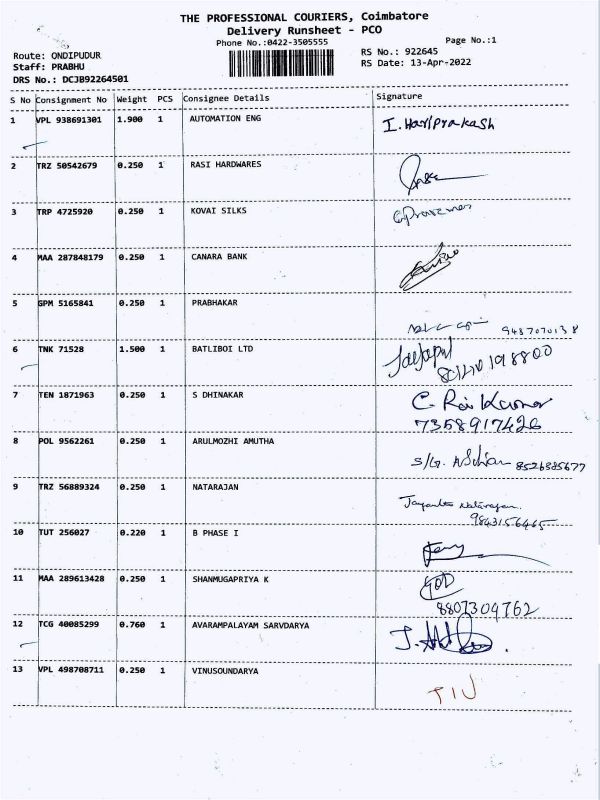 THE PROFESSIONAL COURIERS, Coimbatore
Delivery Runsheet - PCO
Phone No.:0422-3505555
Page No.:1
Route: ONDIPUDUR
RS No.: 922645
Staff: PRABHU
RS Date: 13-Apr-2022
DRS No.: DCJB92264501
S No Consignment No Weight PCS Consignee Details Signature
1 VPL 938691301 1.900 1 AUTOMATION ENG I. Hariprakash
2 TRZ 50542679 0.250 1 RASI HARDWARES
3 TRP 4725920 0.250 1 KOVAI SILKS
4 MAA 287848179 0.250 1 CANARA BANK
5 GPM 5165841 0.250 1 PRABHAKAR
9487070138
6 TNK 71528 1.500 1 BATLIBOI LTD
7 TEN 1871963 0.250 1 S DHINAKAR
7358917426
8 POL 9562261 0.250 1 ARULMOZHI AMUTHA
8526835677
9 TRZ 56889324 0.250 1 NATARAJAN
Natarajan
9843156465
10 TUT 256027 0.220 1 B PHASE I
11 MAA 289613428 0.250 1 SHANMUGAPRIYA K
8807309762
12 TCG 40085299 0.760 1 AVARAMPALAYAM SARVDARYA
13 VPL 498708711 0.250 1 VINUSOUNDARYA